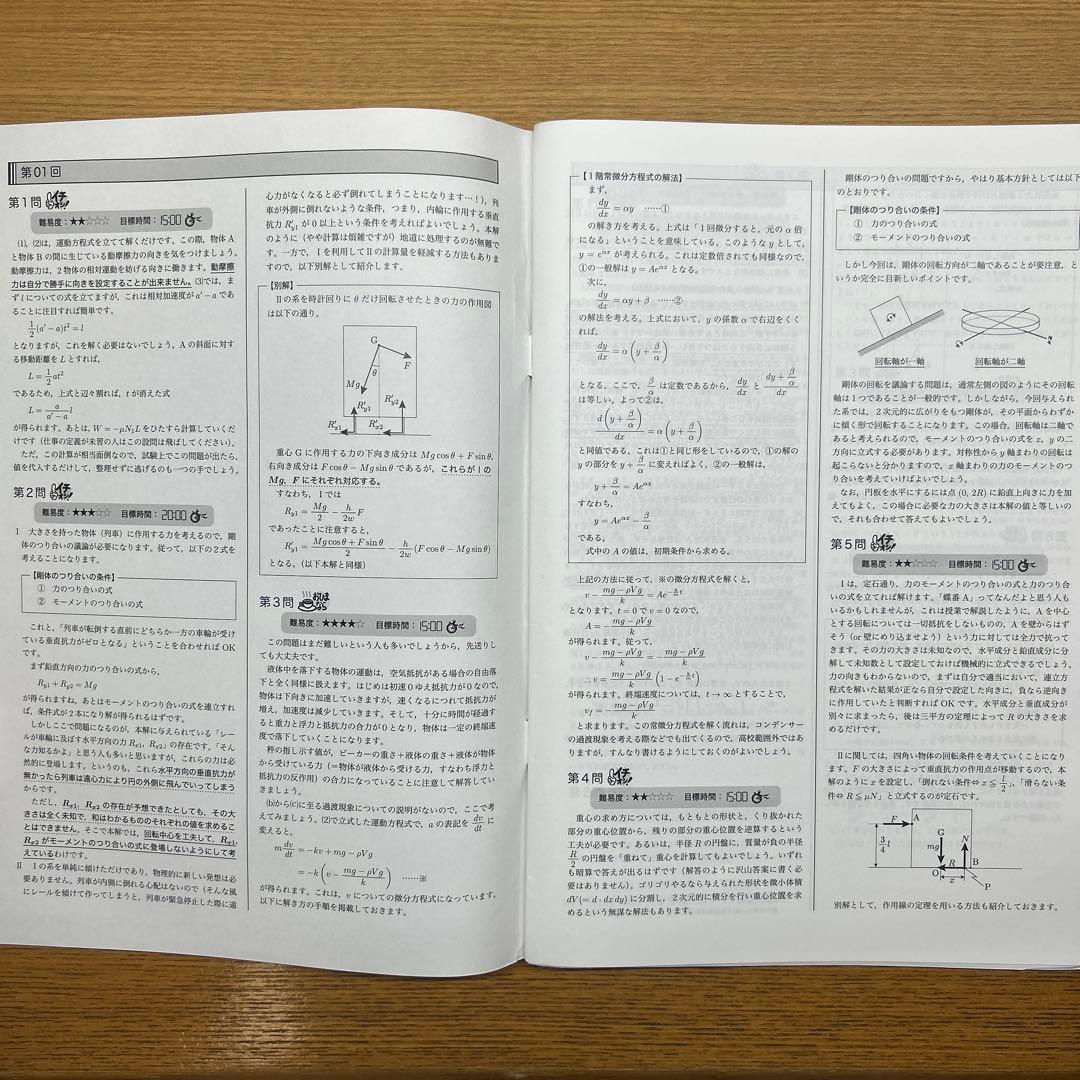 第01回
第1問 イチオシ!
難易度：★★☆☆☆ 目標時間：15:00
(1), (2)は，運動方程式を立てて解くだけです。この際，物体 A
と物体 B の間に生じている動摩擦力の向きを気をつけましょう。
動摩擦力は，2 物体の相対運動を妨げる向きに働きます。動摩擦
力は自分で勝手に向きを設定することが出来ません。(3)では，ま
ず l についての式を立てますが，これは相対加速度が a′−a であ
ることに注目すれば簡単です。
1/2(a′−a)t²=l
となりますが，これを解く必要はないでしょう。A の斜面に対す
る移動距離を L とすれば，
L=1/2at²
であるため，上式と辺々割れば，t が消えた式
L=a/(a′−a)l
が得られます。あとは，W=−μN₁L をひたすら計算していくだ
けです（仕事の定義が未習の人はこの設問は飛ばしてください）。
ただ，この計算が相当面倒なので，試験上でこの問題が出たら，
値を代入するだけして，整理せずに逃げるのも一つの手でしょう。
第2問 イチオシ!
難易度：★★★☆☆ 目標時間：20:00
I 大きさを持った物体（列車）に作用する力を考えるので，剛
体のつり合いの議論が必要になります。従って，以下の2式を
考えることになります。
【剛体のつり合いの条件】
① 力のつり合いの式
② モーメントのつり合いの式
これと，「列車が転倒する直前にどちらか一方の車輪が受け
ている垂直抗力がゼロとなる」ということを合わせれば OK
です。
まず鉛直方向の力のつり合いの式から，
Ry1+Ry2=Mg
が得られますね。あとはモーメントのつり合いの式を連立すれ
ば，条件式が2本になり解が得られるはずです。
しかしここで問題になるが，本解で与えられている「レー
ルが車輪に及ぼす水平方向の力 Rx1, Rx2」の存在です。「そん
な力知るかよ」と思う人も多いと思いますが，これらの力は必
然的に登場します。というのも，これら水平方向の垂直抗力が
無かったら列車は遠心力により円の外側に飛んでいってしまう
からです。
ただし，Rx1, Rx2 の存在が予想できたとしても，その大
きさは全く未知で，和はわかるもののそれぞれの値を求めるこ
とはできません。そこで本解では，回転中心を工夫して，Rx1,
Rx2 がモーメントのつり合いの式に登場しないようにして考
えているわけです。
II Iの系を単純に傾けただけであり，物理的に新しい発想は必
要ありません。列車が内側に倒れる心配はないので（そんな風
にレールを傾けて作ってしまうと，列車が緊急停止した際に遠
心力がなくなると必ず倒れてしまうことになります…！），列
車が外側に倒れないような条件，つまり，内輪に作用する垂直
抗力 R′y1 が0以上という条件を考えればよいでしょう。本解
のように（やや計算は煩雑ですが）地道に処理するのが無難で
す。一方で，I を利用して II の計算量を軽減する方法もありま
すので，以下別解として紹介します。
【別解】
IIの系を時計回りに θ だけ回転させたときの力の作用図
は以下の通り。
G
F
θ
Mg
R′y1
R′y2
R′x1
R′x2
重心 G に作用する力の下向き成分は Mg cosθ+F sinθ,
右向き成分は F cosθ−Mg sinθ であるが，これらが I の
Mg, F にそれぞれ対応する。
すなわち，I では
Ry1=Mg/2−h/2w F
であったことに注意すると，
R′y1=(Mg cosθ+F sinθ)/2−h/2w(F cosθ−Mg sinθ)
となる。（以下本解と同様）
第3問
難易度：★★★★☆ 目標時間：15:00
この問題はまだ難しいという人も多いでしょうから，先送りし
ても大丈夫です。
液体中を落下する物体の運動は，空気抵抗がある場合の自由落
下と全く同様に扱えます。はじめは初速0ゆえ抵抗力が0なので，
物体は下向きに加速していきますが，速くなるにつれて抵抗力が
増え，加速度は減少していきます。そして，十分に時間が経過す
ると重力と浮力と抵抗力の合力が0となり，物体は一定の終端速
度で落下していくことになります。
秤の指し示す値が，ビーカーの重さ＋液体の重さ＋液体が物体
から受けている力（＝物体が液体から受ける力，すなわち浮力と
抵抗力の反作用）の合力になっていることに注意して解答してい
きましょう。
(b)から(c)に至る過渡現象についての説明がないので，ここで考
えてみましょう。(2)で立式した運動方程式で，a の表記を dv/dt に
変えると，
m dv/dt=−kv+mg−ρVg
=−k(v−(mg−ρVg)/k) ……※
が得られます。これは，v についての微分方程式になっています。
以下に解き方の手順を掲載しておきます。
【1階常微分方程式の解法】
まず，
dy/dx=αy ……①
の解き方を考える。上式は「1回微分すると，元の α 倍
になる」ということを意味している。このような y として，
y=e^αx が考えられる。これは定数倍されても同様なので，
①の一般解は y=Ae^αx となる。
次に，
dy/dx=αy+β ……②
の解法を考える。上式において，y の係数 α で右辺をくく
れば，
dy/dx=α(y+β/α)
となる。ここで，β/α は定数であるから，dy/dx と d(y+β/α)/dx
は等しい。よって②は，
d(y+β/α)/dx=α(y+β/α)
と同値である。これは①と同じ形をしているので，①の解の
y の部分を y+β/α に変えればよく，②の一般解は，
y+β/α=Ae^αx
すなわち，
y=Ae^αx−β/α
である。
式中の A の値は，初期条件から求める。
上記の方法に従って，※の微分方程式を解くと，
v−(mg−ρVg)/k=Ae^(−k/m t)
となります。t=0 で v=0 なので，
A=−(mg−ρVg)/k
が得られます。従って，
v−(mg−ρVg)/k=−(mg−ρVg)/k
∴v=(mg−ρVg)/k(1−e^(−k/m t))
が得られます。終端速度については，t→∞ とすることで，
vf=−(mg−ρVg)/k
と求まります。この常微分方程式を解く流れは，コンデンサー
の過渡現象を考える際などでも出てくるので，高校範囲外ではあ
りますが，すんなり書けるようにしておくのがよいでしょう。
第4問 イチオシ!
難易度：★★☆☆☆ 目標時間：15:00
重心の求め方については，もともとの形状と，くり抜かれた
部分の重心位置から，残りの部分の重心位置を逆算するという
工夫が必要です。あるいは，半径 R の円盤に，質量が負の半径
R/2 の円盤を「重ねて」重心を計算してもよいでしょう。いずれ
も暗算で答えが出るはずです（解答のように沢山答案に書く必
要はありません）。ゴリゴリやるなら与えられた形状を微小体積
dV(=d·dxdy) に分割し，2次元的に積分を行い重心位置を求
めるという無謀な解法もあります。
剛体のつり合いの問題ですから，やはり基本方針としては以下
のとおりです。
【剛体のつり合いの条件】
① 力のつり合いの式
② モーメントのつり合いの式
しかし今回は，剛体の回転方向が二軸であることが要注意，と
いうか完全に目新しいポイントです。
回転軸が一軸
回転軸が二軸
剛体の回転を議論する問題は，通常左側の図のようにその回転
軸は1つであることが一般的です。しかしながら，今回与えられ
た系では，2次元的に広がりをもつ剛体が，その平面からわずか
に傾く形で回転することになります。この場合，回転軸は二軸で
あると考えられるので，モーメントのつり合いの式を x, y の二
方向に立式する必要があります。対称性から y 軸まわりの回転は
起こらないと分かりますので，x 軸まわりの力のモーメントのつ
り合いを考えていけばよいでしょう。
なお，円板を水平にするには点 (0, 2R) に鉛直上向きに力を加
えてもよく，この場合に必要な力の大きさは本解の値と等しいの
で，それも合わせて答えてもよいでしょう。
第5問 イチオシ!
難易度：★★☆☆☆ 目標時間：15:00
Iは，定石通り，力のモーメントのつり合いの式と力のつり合い
の式を立てれば解けます。「蝶番 A」ってなんだよと思う人もい
るかもしれませんが，これは授業で解説したように，A を中心
とする回転については一切抵抗をしないものの，A を壁からはず
そう（or 壁にめり込ませよう）という力に対しては全力で抗って
きます。その力の大きさは未知なので，水平成分と鉛直成分に分
解して未知数として設定しておけば機械的に立式できるでしょう。
力の向きもわからないので，まずは自分で適当において，連立方
程式を解いた結果が正なら自分で設定した向きに，負なら逆向き
に作用していたと判断すれば OK です。水平成分と垂直成分が
別々に求まったら，後は三平方の定理によって R の大きさを求
めるだけです。
IIに関しては，四角い物体の回転条件を考えていくことになり
ます。F の大きさによって垂直抗力の作用点が移動するので，本
解のように x を設定し，「倒れない条件⇔x≤l/2」，「滑らない条
件⇔R≤μN」と立式するのが定石です。
F
A
3/4 l
G
N
mg
R
B
O
x
P
別解として，作用線の定理を用いる方法も紹介しておきます。